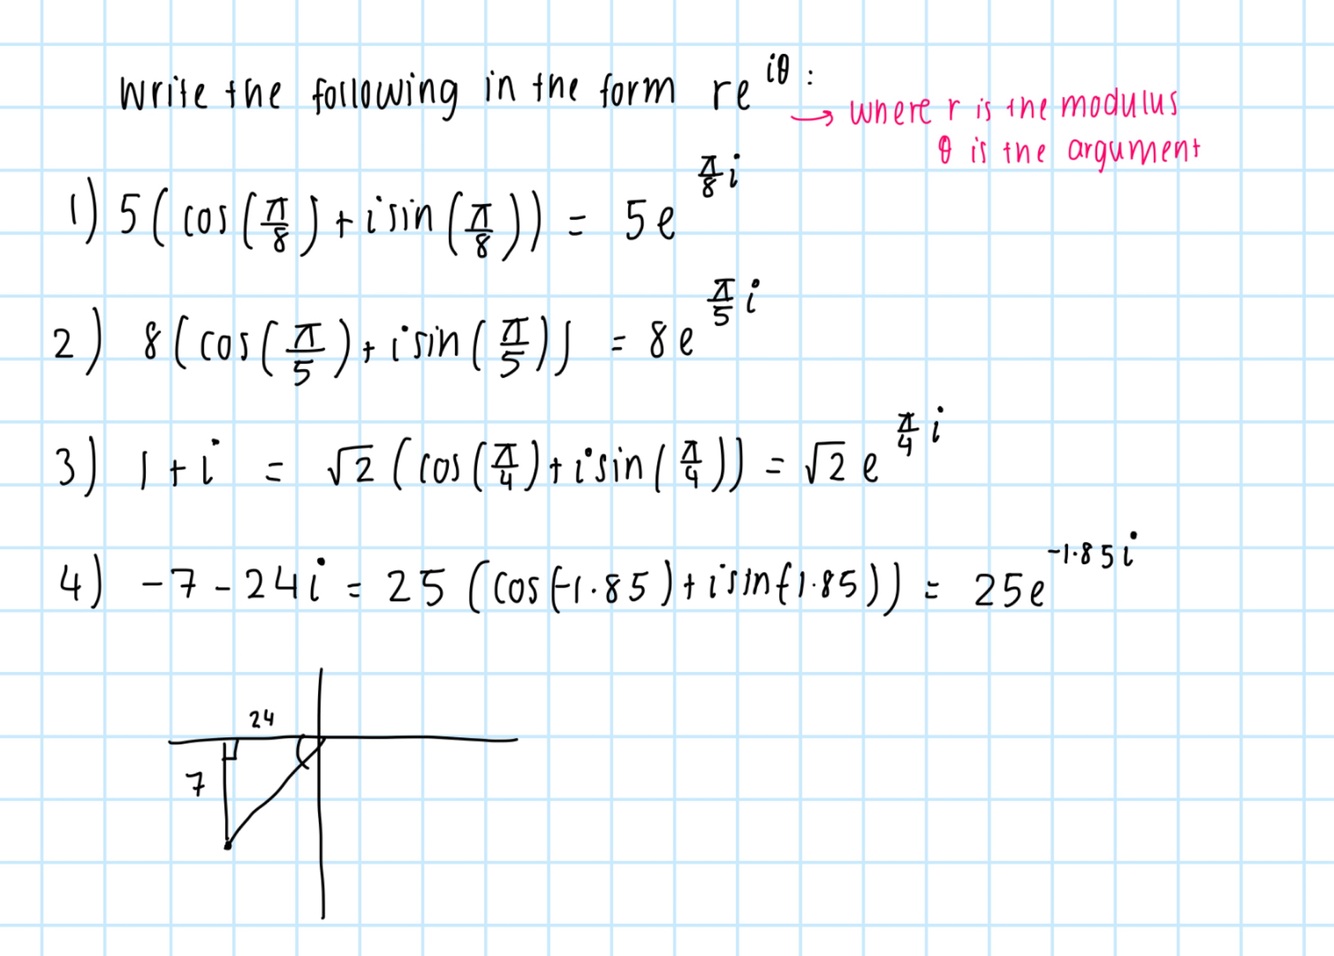 Write the following in the form re^{iθ} :
→ where r is the modulus
θ is the argument
1) 5(cos(π/8)+isin(π/8)) = 5e^{π/8 i}
2) 8(cos(π/5)+isin(π/5)) = 8e^{π/5 i}
3) 1+i = √2(cos(π/4)+isin(π/4)) = √2e^{π/4 i}
4) -7-24i = 25(cos(-1.85)+isin(-1.85)) = 25e^{-1.85i}
24
7